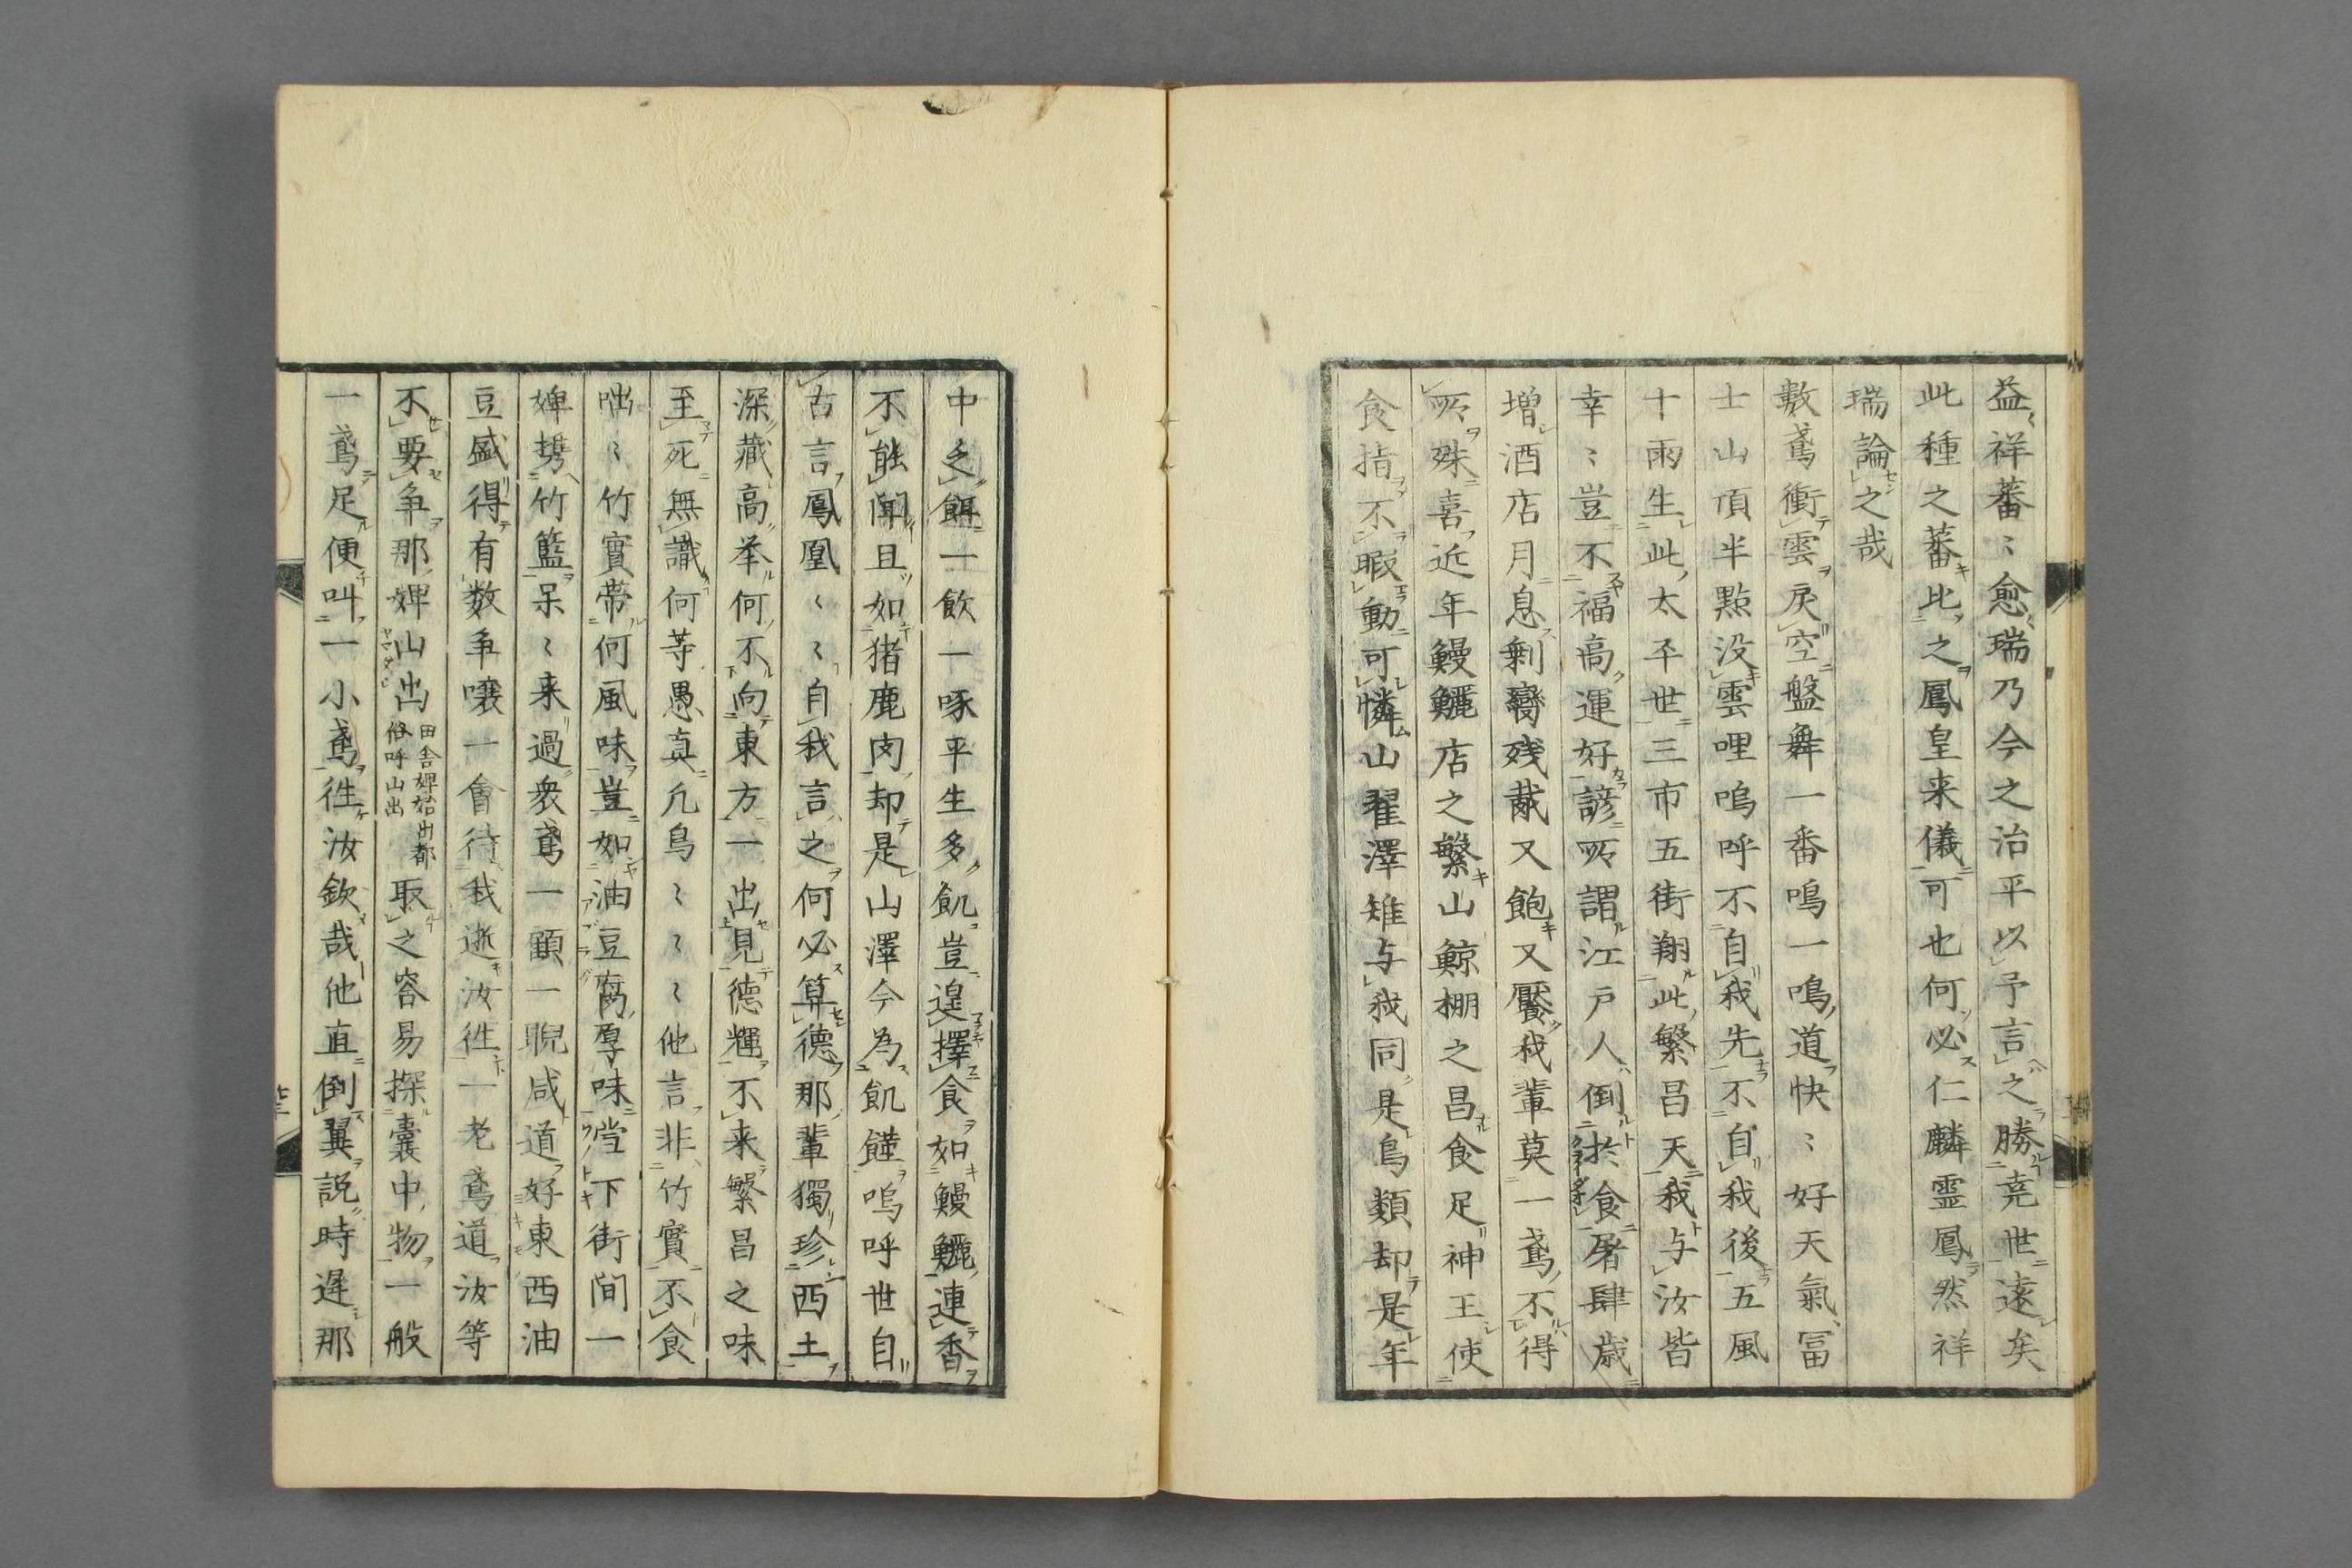 益〻祥蕃〻愈瑞乃今之治平以予言之勝堯世遠矣
此種之蕃比之鳳皇来儀可也何必仁麟霊鳳然祥
瑞論之哉
數鳶衝雲戻空盤舞一番鳴一鳴道快〻好天氣冨
士山頂半點没雲哩嗚呼不自我先不自我後五風
十雨生此太平世三市五街翔此繁昌天我与汝皆
幸〻豈不福高運好諺所謂江戸人倒於食屠肆歳
増酒店月息剰臠残胾又飽又饜我輩莫一鳶不得
所殊喜近年鰻鱺店之繁山鯨棚之昌食足神王使
食指不暇動可憐山翟澤雉与我同是鳥類却是年
中乏餌一飲一啄平生多飢豈遑擇食如鰻鱺連香
不能聞且如猪鹿肉却是山澤今為飢饉嗚呼世自
古言鳳凰〻自我言之何必算德那輩獨珍西土
深藏高挙何不向東方一出見德輝不来繁昌之味
至死無識何等愚真凢鳥〻〻〻他言非竹實不食
咄〻竹實帶何風味豈如油豆腐厚味當下街間一
婢携竹籃呆〻来過衆鳶一顧一睨咸道好東西油
豆盛得有数争嚷一會待我逝汝徃一老鳶道汝等
不要争那婢山出田舎婢始出都俗呼山出取之容易探囊中物一般
一鳶足便叫一小鳶徃汝欽哉他直倒翼説時遅那